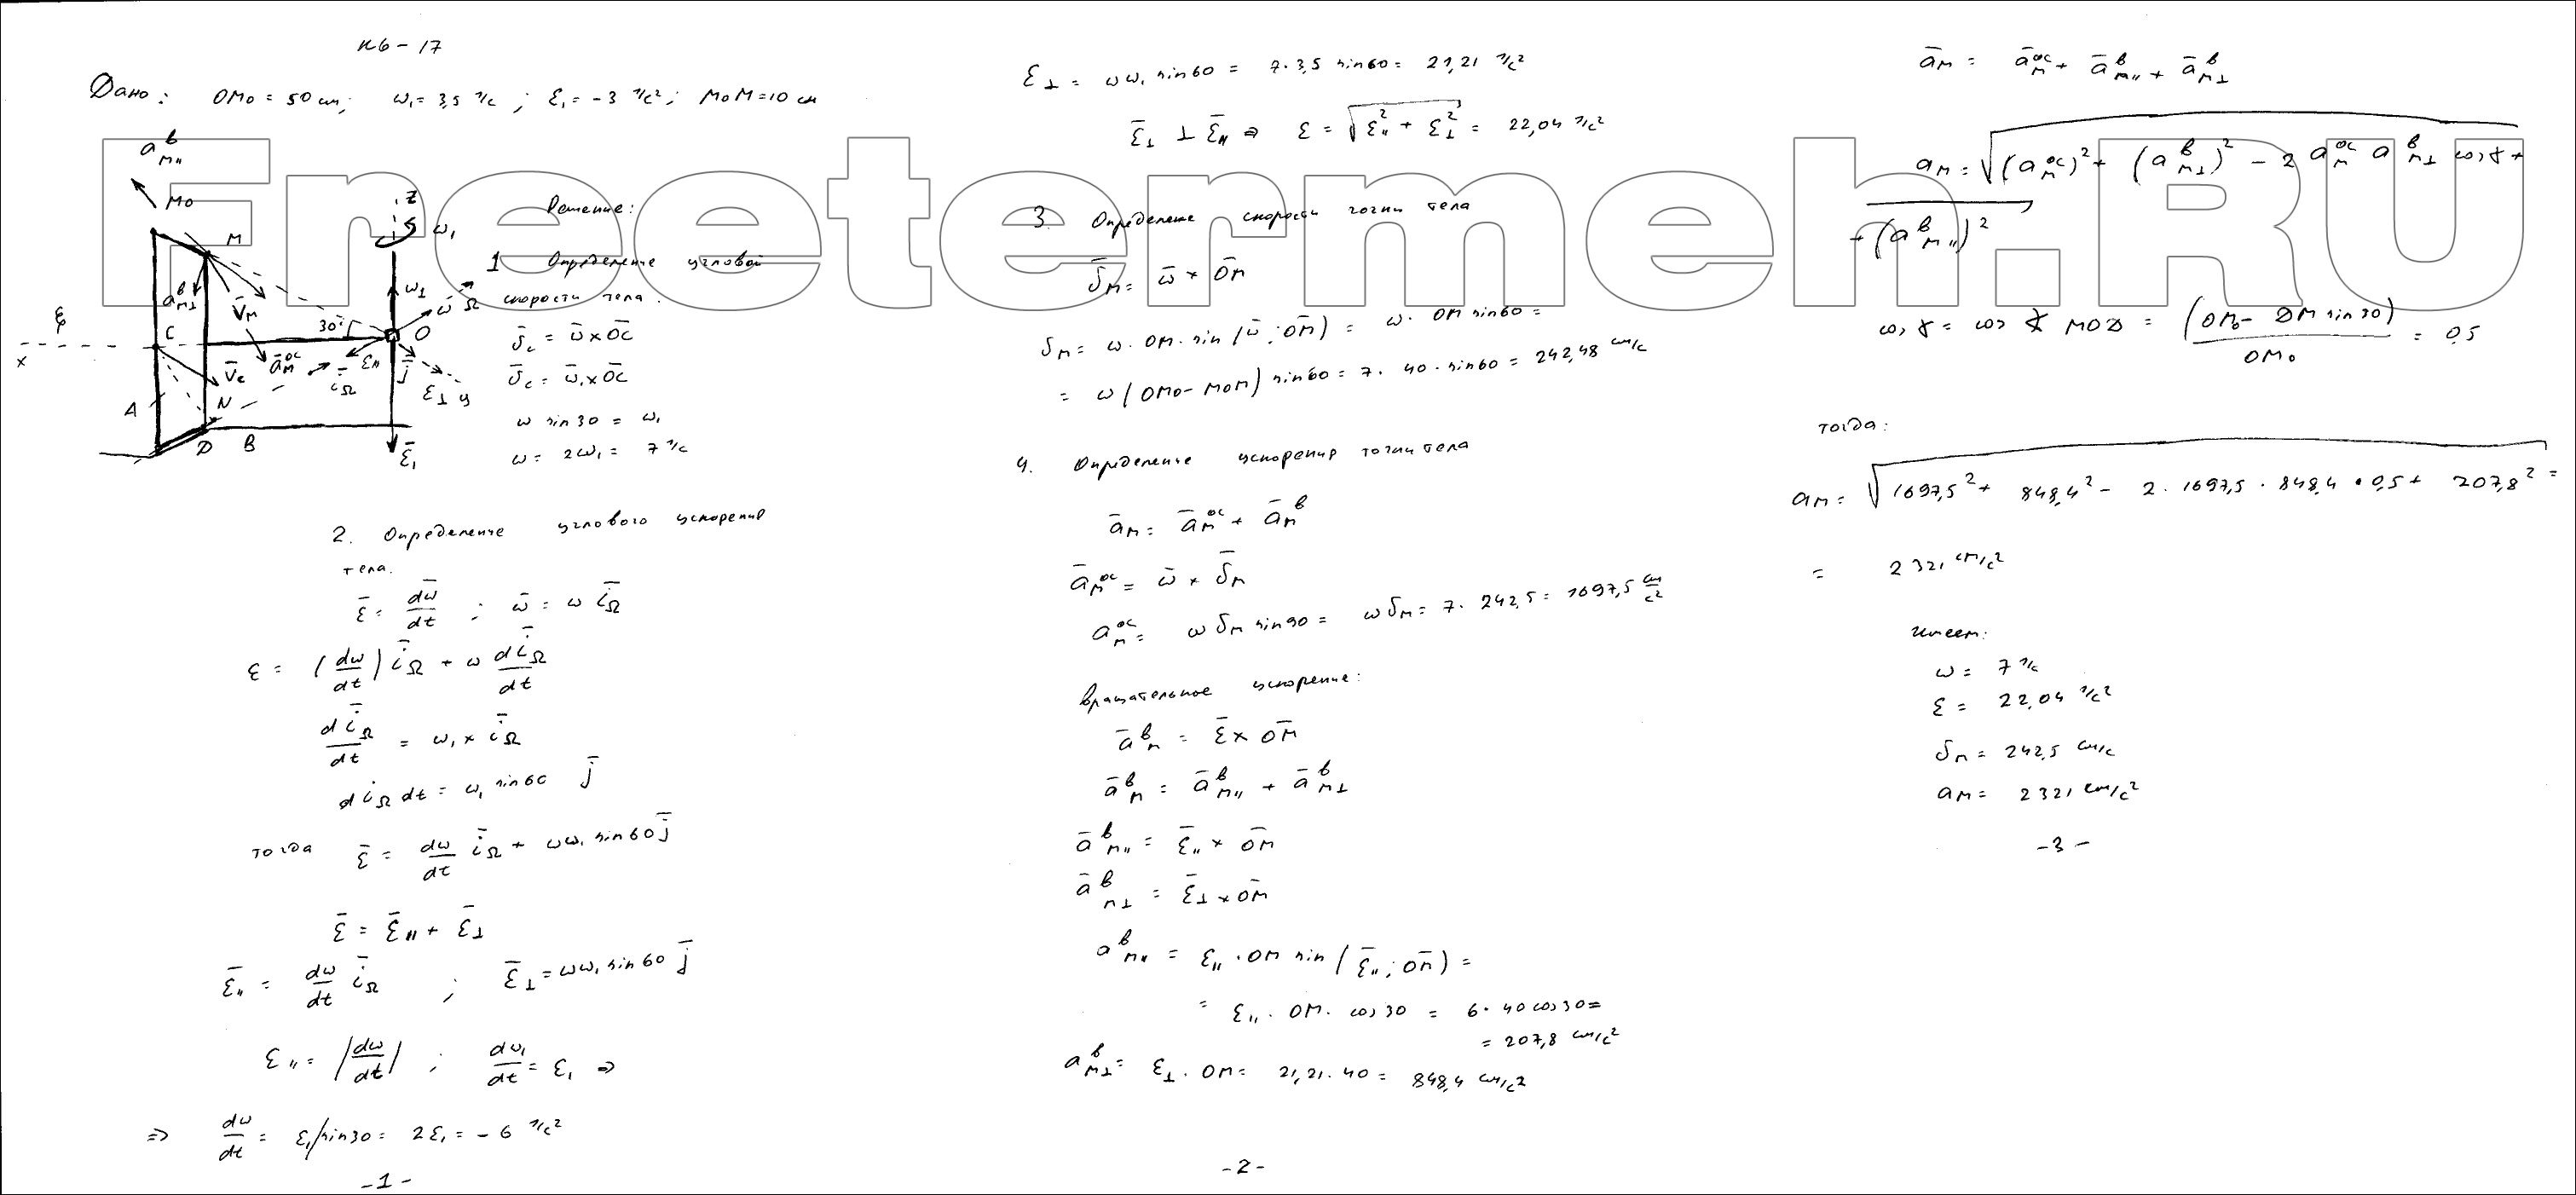 К6-17
Дано: OM₀ = 50 см; ω₁ = 3,5 1/с; ε₁ = -3 1/с²; M₀M = 10 см
Freetermeh.RU
a^в_M∥
M₀
M
z
ω₁
a^в_M⊥
V̄_M
ω⊥
ω̄
Ω
ξ
C
30°
O
x
V̄_c
ā^ос_M
ε∥
ī_Ω
j̄
ε⊥
y
A
N
D
B
ε̄₁
Решение:
1 Определение угловой
скорости тела.
ῡ_c = ω̄ × O̅C̅
ῡ_c = ω̄₁ × O̅C̅
ω sin30 = ω₁
ω = 2ω₁ = 7 1/с
2. Определение углового ускорения
тела.
ε̄ = dω̄/dt ; ω̄ = ω ī_Ω
ε = (dω/dt) ī_Ω + ω dī_Ω/dt
dī_Ω/dt = ω₁ × ī_Ω
d i_Ω dt = ω₁ sin60 j̄
тогда ε̄ = dω/dt ī_Ω + ωω₁ sin60 j̄
ε̄ = ε̄∥ + ε̄⊥
ε̄∥ = dω/dt ī_Ω ; ε̄⊥ = ωω₁ sin60 j̄
ε∥ = |dω/dt| ; dω₁/dt = ε₁ ⇒
⇒ dω/dt = ε₁/sin30 = 2ε₁ = -6 1/с²
-1-
ε⊥ = ωω₁ sin60 = 7·3,5 sin60 = 21,21 1/с²
ε̄⊥ ⊥ ε̄∥ ⇒ ε = √(ε∥² + ε⊥²) = 22,04 1/с²
3. Определение скорости точки тела
ῡ_M = ω̄ × O̅M̅
υ_M = ω · OM · sin(ω̄; O̅M̅) = ω · OM sin60 =
= ω(OM₀ - M₀M) sin60 = 7 · 40 · sin60 = 242,48 см/с
4. Определение ускорения точки тела
ā_M = ā^ос_M + ā^в_M
ā^ос_M = ω̄ × ῡ_M
a^ос_M = ω υ_M sin90 = ω υ_M = 7 · 242,5 = 1697,5 см/с²
вращательное ускорение:
ā^в_M = ε̄ × O̅M̅
ā^в_M = ā^в_M∥ + ā^в_M⊥
ā^в_M∥ = ε̄∥ × O̅M̅
ā^в_M⊥ = ε̄⊥ × O̅M̅
a^в_M∥ = ε∥ · OM sin(ε̄∥; O̅M̅) =
= ε∥ · OM · cos30 = 6 · 40 cos30 =
= 207,8 см/с²
a^в_M⊥ = ε⊥ · OM = 21,21 · 40 = 848,4 см/с²
-2-
ā_M = ā^ос_M + ā^в_M∥ + ā^в_M⊥
a_M = √((a^ос_M)² + (a^в_M⊥)² - 2 a^ос_M a^в_M⊥ cos γ +
+ (a^в_M∥)²
cos γ = cos ∠ MOD = (OM₀ - DM sin30)/OM₀ = 0,5
тогда:
a_M = √(1697,5² + 848,4² - 2 · 1697,5 · 848,4 · 0,5 + 207,8²) =
= 2321 см/с²
имеем:
ω = 7 1/с
ε = 22,04 1/с²
υ_M = 242,5 см/с
a_M = 2321 см/с²
-3-